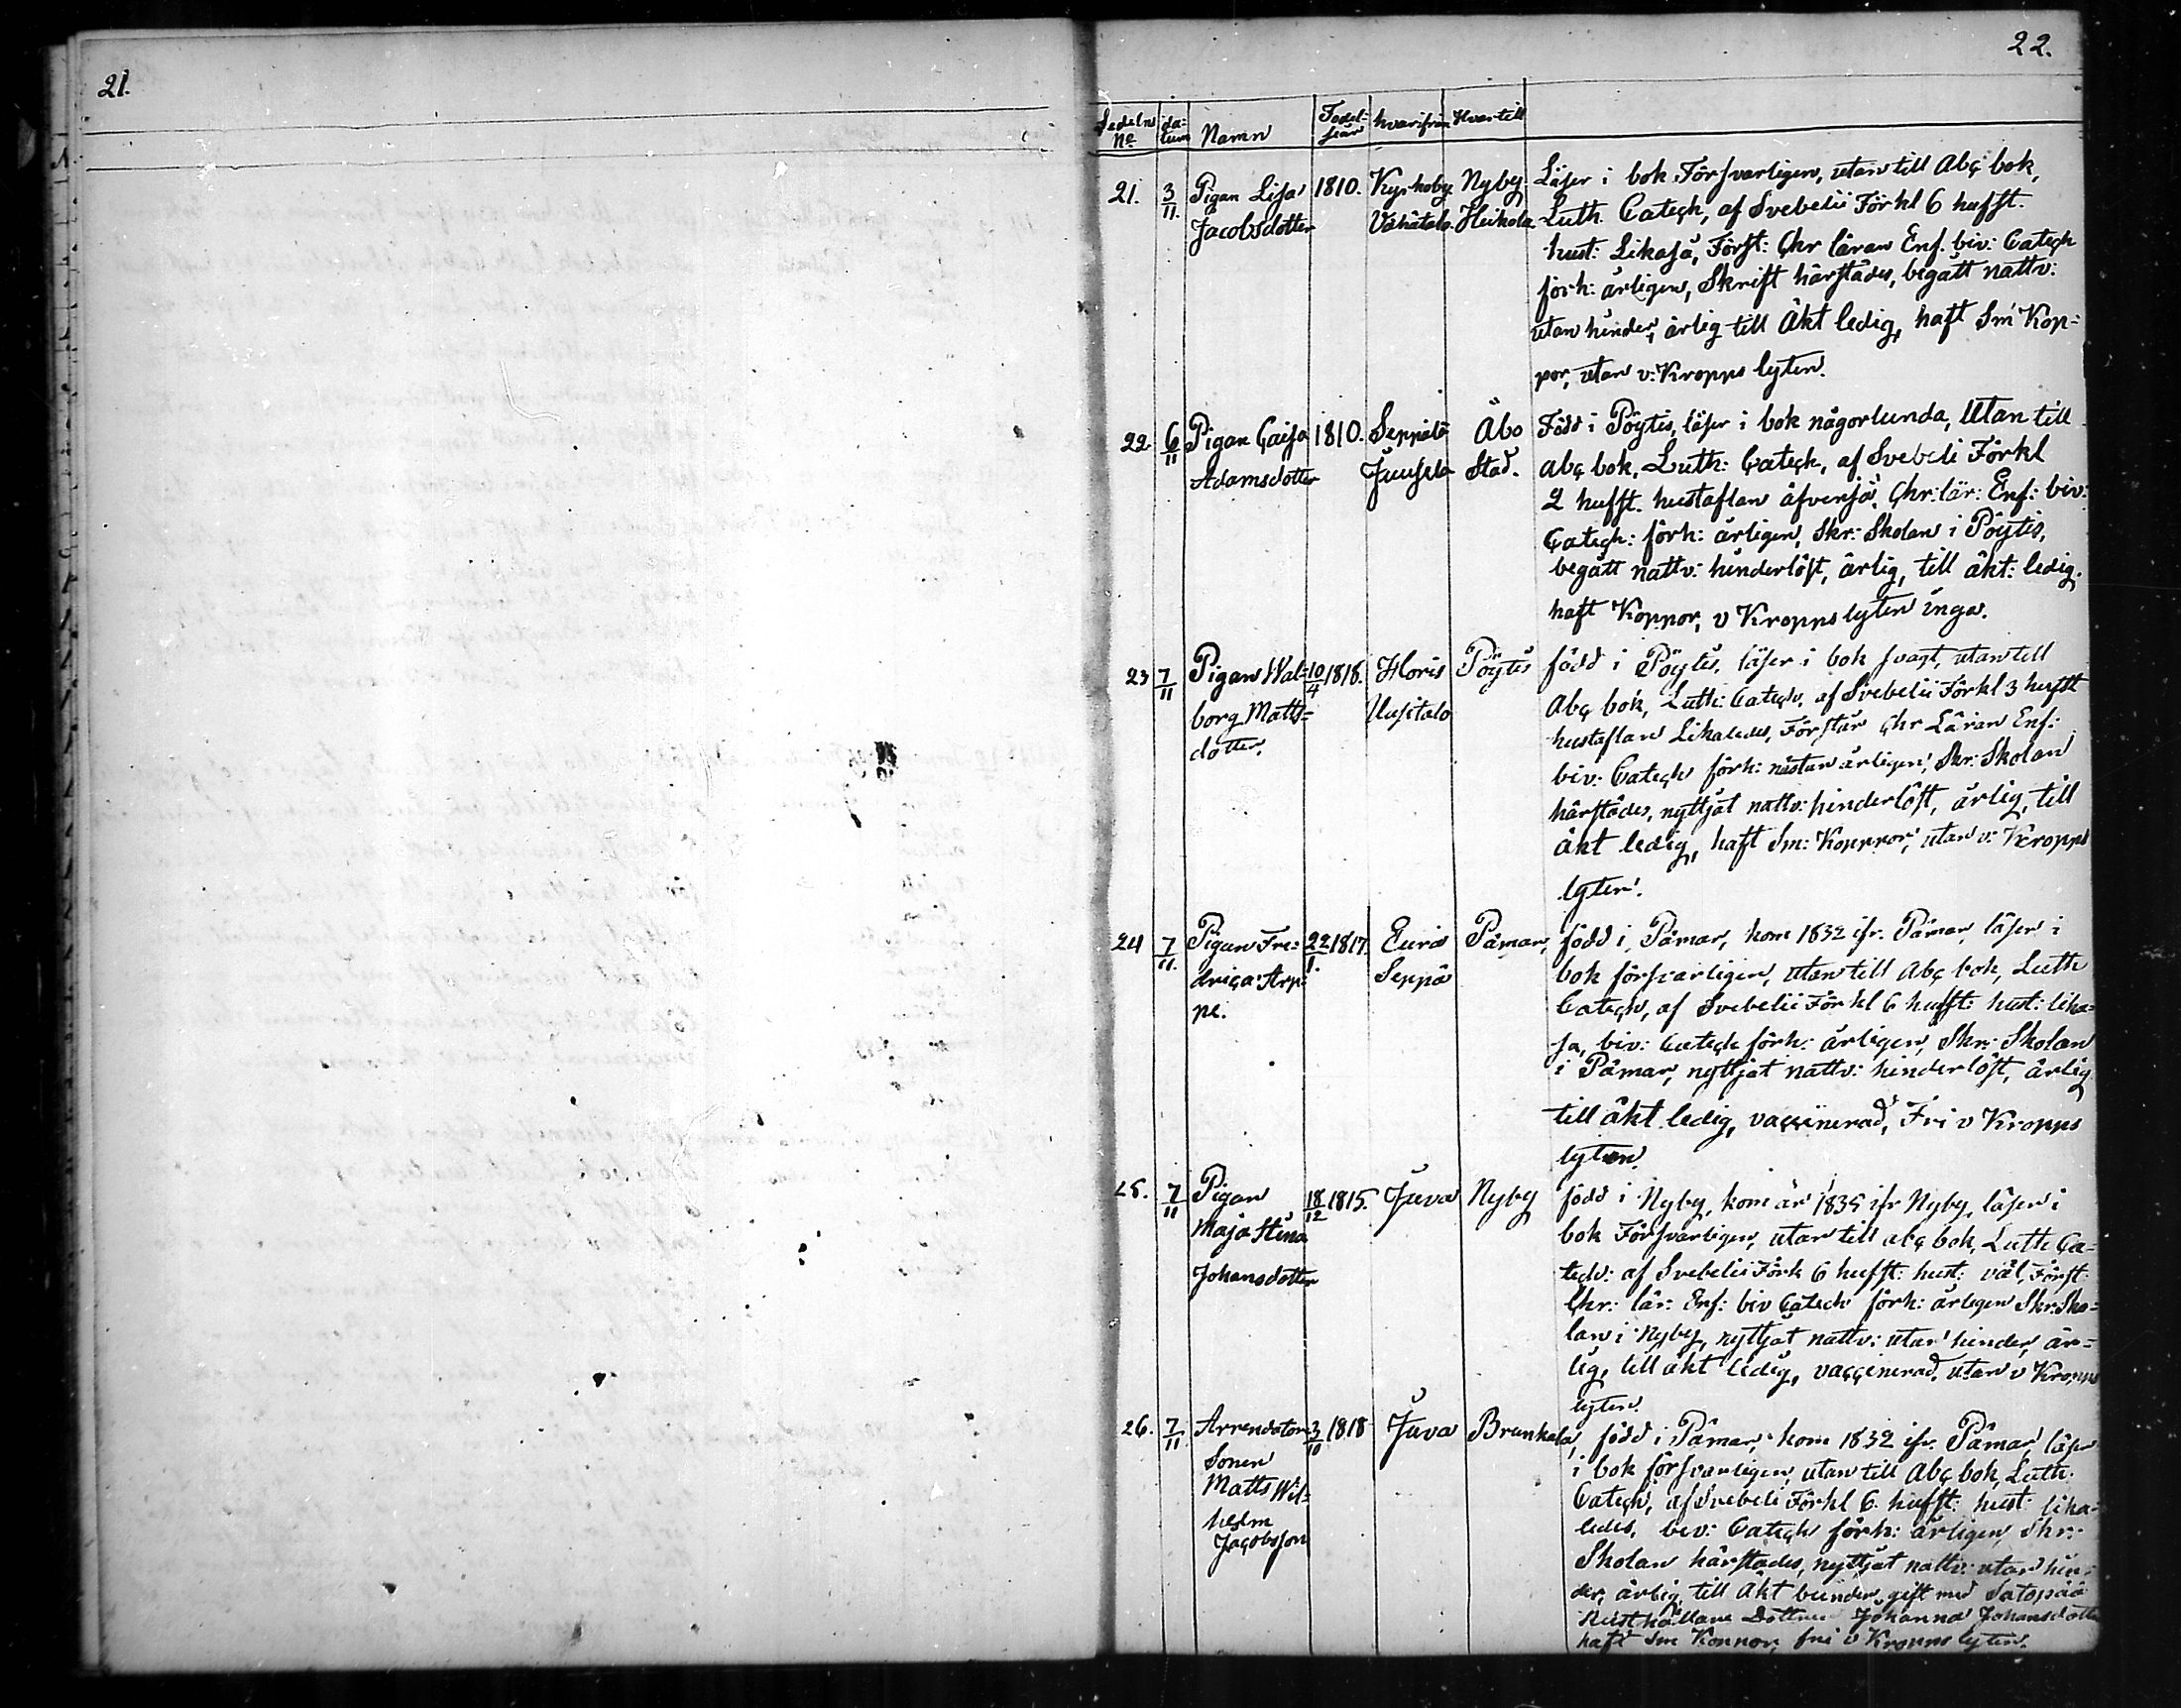 21.
22.
Sedelns No da:tum Namn Födel:seår hvarifrån Hvartill
21. 3/11. Pigan Lisa 1810. Kyrkoby Nyby Läser i bok Försvarligen, utan till Abc bok,
Jacobsdotter Vähätalo. Heikola Luth. Catech, af Svebelii Förkl 6 hufst.
hust: Likaså, Först: Chr läran Enf. biv: Catech
förh: årligen, Skrift härstädes, begått nattv:
utan hinder, ärlig till Äkt ledig, haft Sm Kop:
por, utan v: Kropps lyten.
22. 6/11 Pigan Caisa 1810. Seppälä Åbo Född i Pöytis, läser i bok någorlunda, Utan till
Adamsdotter Juusela Stad. Abc bok, Luth: Catech, af Svebeli Förkl
2 hufst. hustaflan äfvenså, Chr: lär: Enf: biv:
Catech: förh: årligen, Skr: Skolan i Pöytis,
begått nattv: hinderlöst, ärlig, till äkt: ledig.
haft Koppor, v Kropps lyten inga.
23 7/11 Pigan Wal: 10/4 1818. Horis Pöytis född i Pöytis, läser i bok svagt, utan till
borg Matts= Uusitalo Abc bok, Luth: Catech, af Svebelii Förkl 3 hufst
dotter. hustaflan Likaledes, Förstår Chr Läran Enf:
biv: Catech förh: nästan årligen, Skr: Skolan
härstädes, nyttjat nattv: hinderlöst, ärlig, till
äkt ledig, haft Sm: Koppor, utan v: Kropps
lyten.
24 7/11. Pigan Fre: 22/1. 1817. Eura Pämar, född i Pämar, kom 1832 ifr. Pämar, läser i
drica Arp: Seppä bok försvarligen, utan till Abc bok, Luth
pe. Catech, af Svebelii Förkl 6 hufst: hust: lika=
så, biv: Catech förh: årligen, Skr: Skolan
i Pämar, nyttjat nattv: hinderlöst, ärlig
till äkt ledig, vaccinerad, Fri v Kropps
lyten.
25. 7/11 Pigan 18/12 1815. Juva Nyby född i Nyby, kom år 1835 ifr Nyby, läser i
Maja Stina bok Försvarligen, utan till abc bok, Luth Ca=
Johansdotter tech: af Svebelii Förk 6 hufst: hust: väl, Först:
Chr: lär: Enf: biv Catech förh: årligen Skr: Sko=
lan i Nyby, nyttjat nattv: utan hinder, är=
lig, till äkt ledig, vaccinerad, utan v Kropps
lyten.
26. 7/11 Arrendators 3/10 1818 Juva Brunkala, född i Pämar, kom 1832 ifr. Pämar, läser
Sonen i bok försvarligen, utan till Abc bok, Luth.
Matts Wil= Catech, af Svebeli Förkl 6. hufst: hust: lika=
helm ledes, biv: Catech förh: årligen, Skr:
Jacobsson Skolan härstädes, nyttjat nattv: utan hin=
der, ärlig, till Äkt bunden, gift med Satopää
Rusthållare Dottren Johanna Johansdotter
haft Sm Koppor, fri v Kropps lyten.